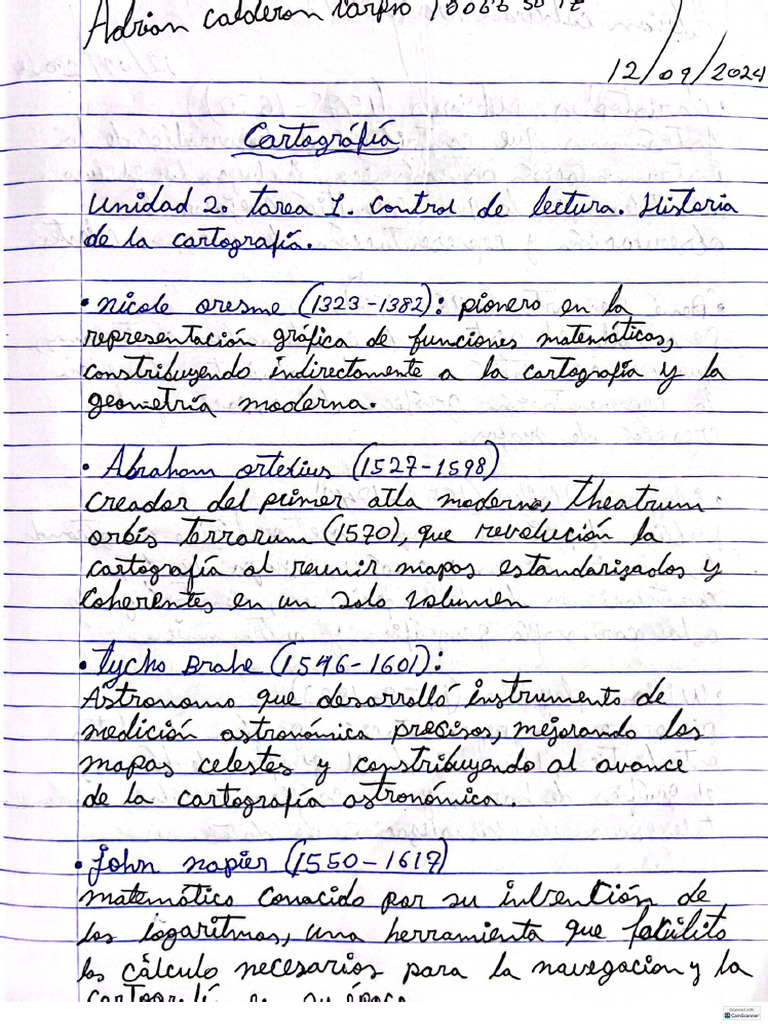 Adrian Calderon Carpio
12/09/2024
Cartográfía
Unidad 2. tarea 1. Control de lectura. Historia
de la cartografía.
• Nicole oresme (1323-1382): pionero en la
representación gráfica de funciones matemáticas,
constribuyendo indirectamente a la cartografía y la
geometría moderna.
• Abraham ortelius (1527-1598)
Creador del primer atla moderno, Theatrum
orbis Terrarum (1570), que revolución la
cartografía al reunir mapas estandarisados y
coherentes en un solo volumen
• Tycho Brahe (1546-1601):
Astronomo que desarrolló instrumento de
medición astronómica precisos, mejorando los
mapas celestes y constribuyendo al avance
de la cartografía astronómica.
• John napier (1550-1617)
matemático conocido por su invención de
los logaritmos, una herramienta que facúlito
los cálculo necesarios para la navegacion y la
su época
Scanned with
CamScanner